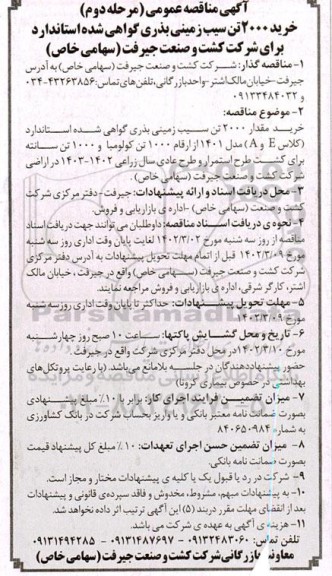 آگهی مناقصه عمومی (مرحله دوم)
خرید ۲۰۰۰ تن سیب زمینی بذری گواهی شده استاندارد
برای شرکت کشت و صنعت جیرفت (سهامی خاص)
۱- مناقصه گذار: شرکت کشت و صنعت جیرفت (سهامی خاص) به آدرس
جیرفت-خیابان مالک اشتر-واحد بازرگانی، تلفن های تماس: ۴۳۲۶۳۸۵۶-۰۳۴
و ۰۹۱۳۳۴۸۴۰۳۲
۲- موضوع مناقصه:
خرید مقدار ۲۰۰۰ تن سیب زمینی بذری گواهی شده استاندارد
(کلاس E و A) مدل ۱۴۰۱ از ارقام ۱۰۰۰ تن کولومبا و ۱۰۰۰ تن سانته
برای کشت طرح استمرار و طرح عادی سال زراعی ۱۴۰۲-۱۴۰۳ در اراضی
شرکت کشت و صنعت جیرفت (سهامی خاص).
۳- محل دریافت اسناد و ارائه پیشنهادات: جیرفت- دفتر مرکزی شرکت
کشت و صنعت (سهامی خاص) -اداره ی بازاریابی و فروش.
۴- نحوه ی دریافت اسناد مناقصه: داوطلبان می توانند جهت دریافت اسناد
مناقصه از روز سه شنبه مورخ ۱۴۰۲/۳/۰۲ لغایت پایان وقت اداری روز سه شنبه
مورخ ۱۴۰۲/۳/۰۹ قبل از اتمام مهلت تحویل پیشنهادات به آدرس دفتر مرکزی
شرکت کشت و صنعت جیرفت (سهامی خاص) واقع در جیرفت، خیابان مالک
اشتر، کارگر شرقی، اداره ی بازاریابی و فروش مراجعه نمایند.
۵- مهلت تحویل پیشنهادات: حداکثر تا پایان وقت اداری روز سه شنبه
مورخ
۶- تاریخ و محل گشایش پاکتها: ساعت ۱۰ صبح روز چهارشنبه
مورخ ۱۴۰۲/۳/۱۰ در محل دفتر مرکزی شرکت واقع در جیرفت.
حضور پیشنهاددهندگان در جلسه بلامانع می باشد. (با رعایت پروتکل های
بهداشتی در خصوص بیماری کرونا)
۷- میزان تضمین فرایند اجرای کار: برابر با ۱۰٪ مبلغ پیشنهادی
بصورت ضمانت نامه معتبر بانکی و یا واریز بحساب شرکت در بانک کشاورزی
به شماره ۸۴۰۶۵۰۹۸۴
۸- میزان تضمین حسن اجرای تعهدات: ۱۰٪ مبلغ کل پیشنهاد قیمت
بصورت ضمانت نامه بانکی.
۹- شرکت در رد یا قبول یک یا کلیه ی پیشنهادات مختار و مجاز است.
۱۰- به پیشنهادات مبهم، مشروط، مخدوش و فاقد سپرده ی قانونی و پیشنهادات
بعد از انقضای مهلت مقرر در بند (۵) این آگهی ترتیب اثر داده نخواهد شد.
۱۱- هزینه ی آگهی به عهده ی شرکت می باشد.
تلفن تماس: ۰۹۱۳۲۴۸۳۰۶۰ - ۰۹۱۳۱۴۸۷۶۹۷ - ۰۹۱۳۱۴۹۴۲۸۵
معاونت بازرگانی شرکت کشت و صنعت جیرفت (سهامی خاص)